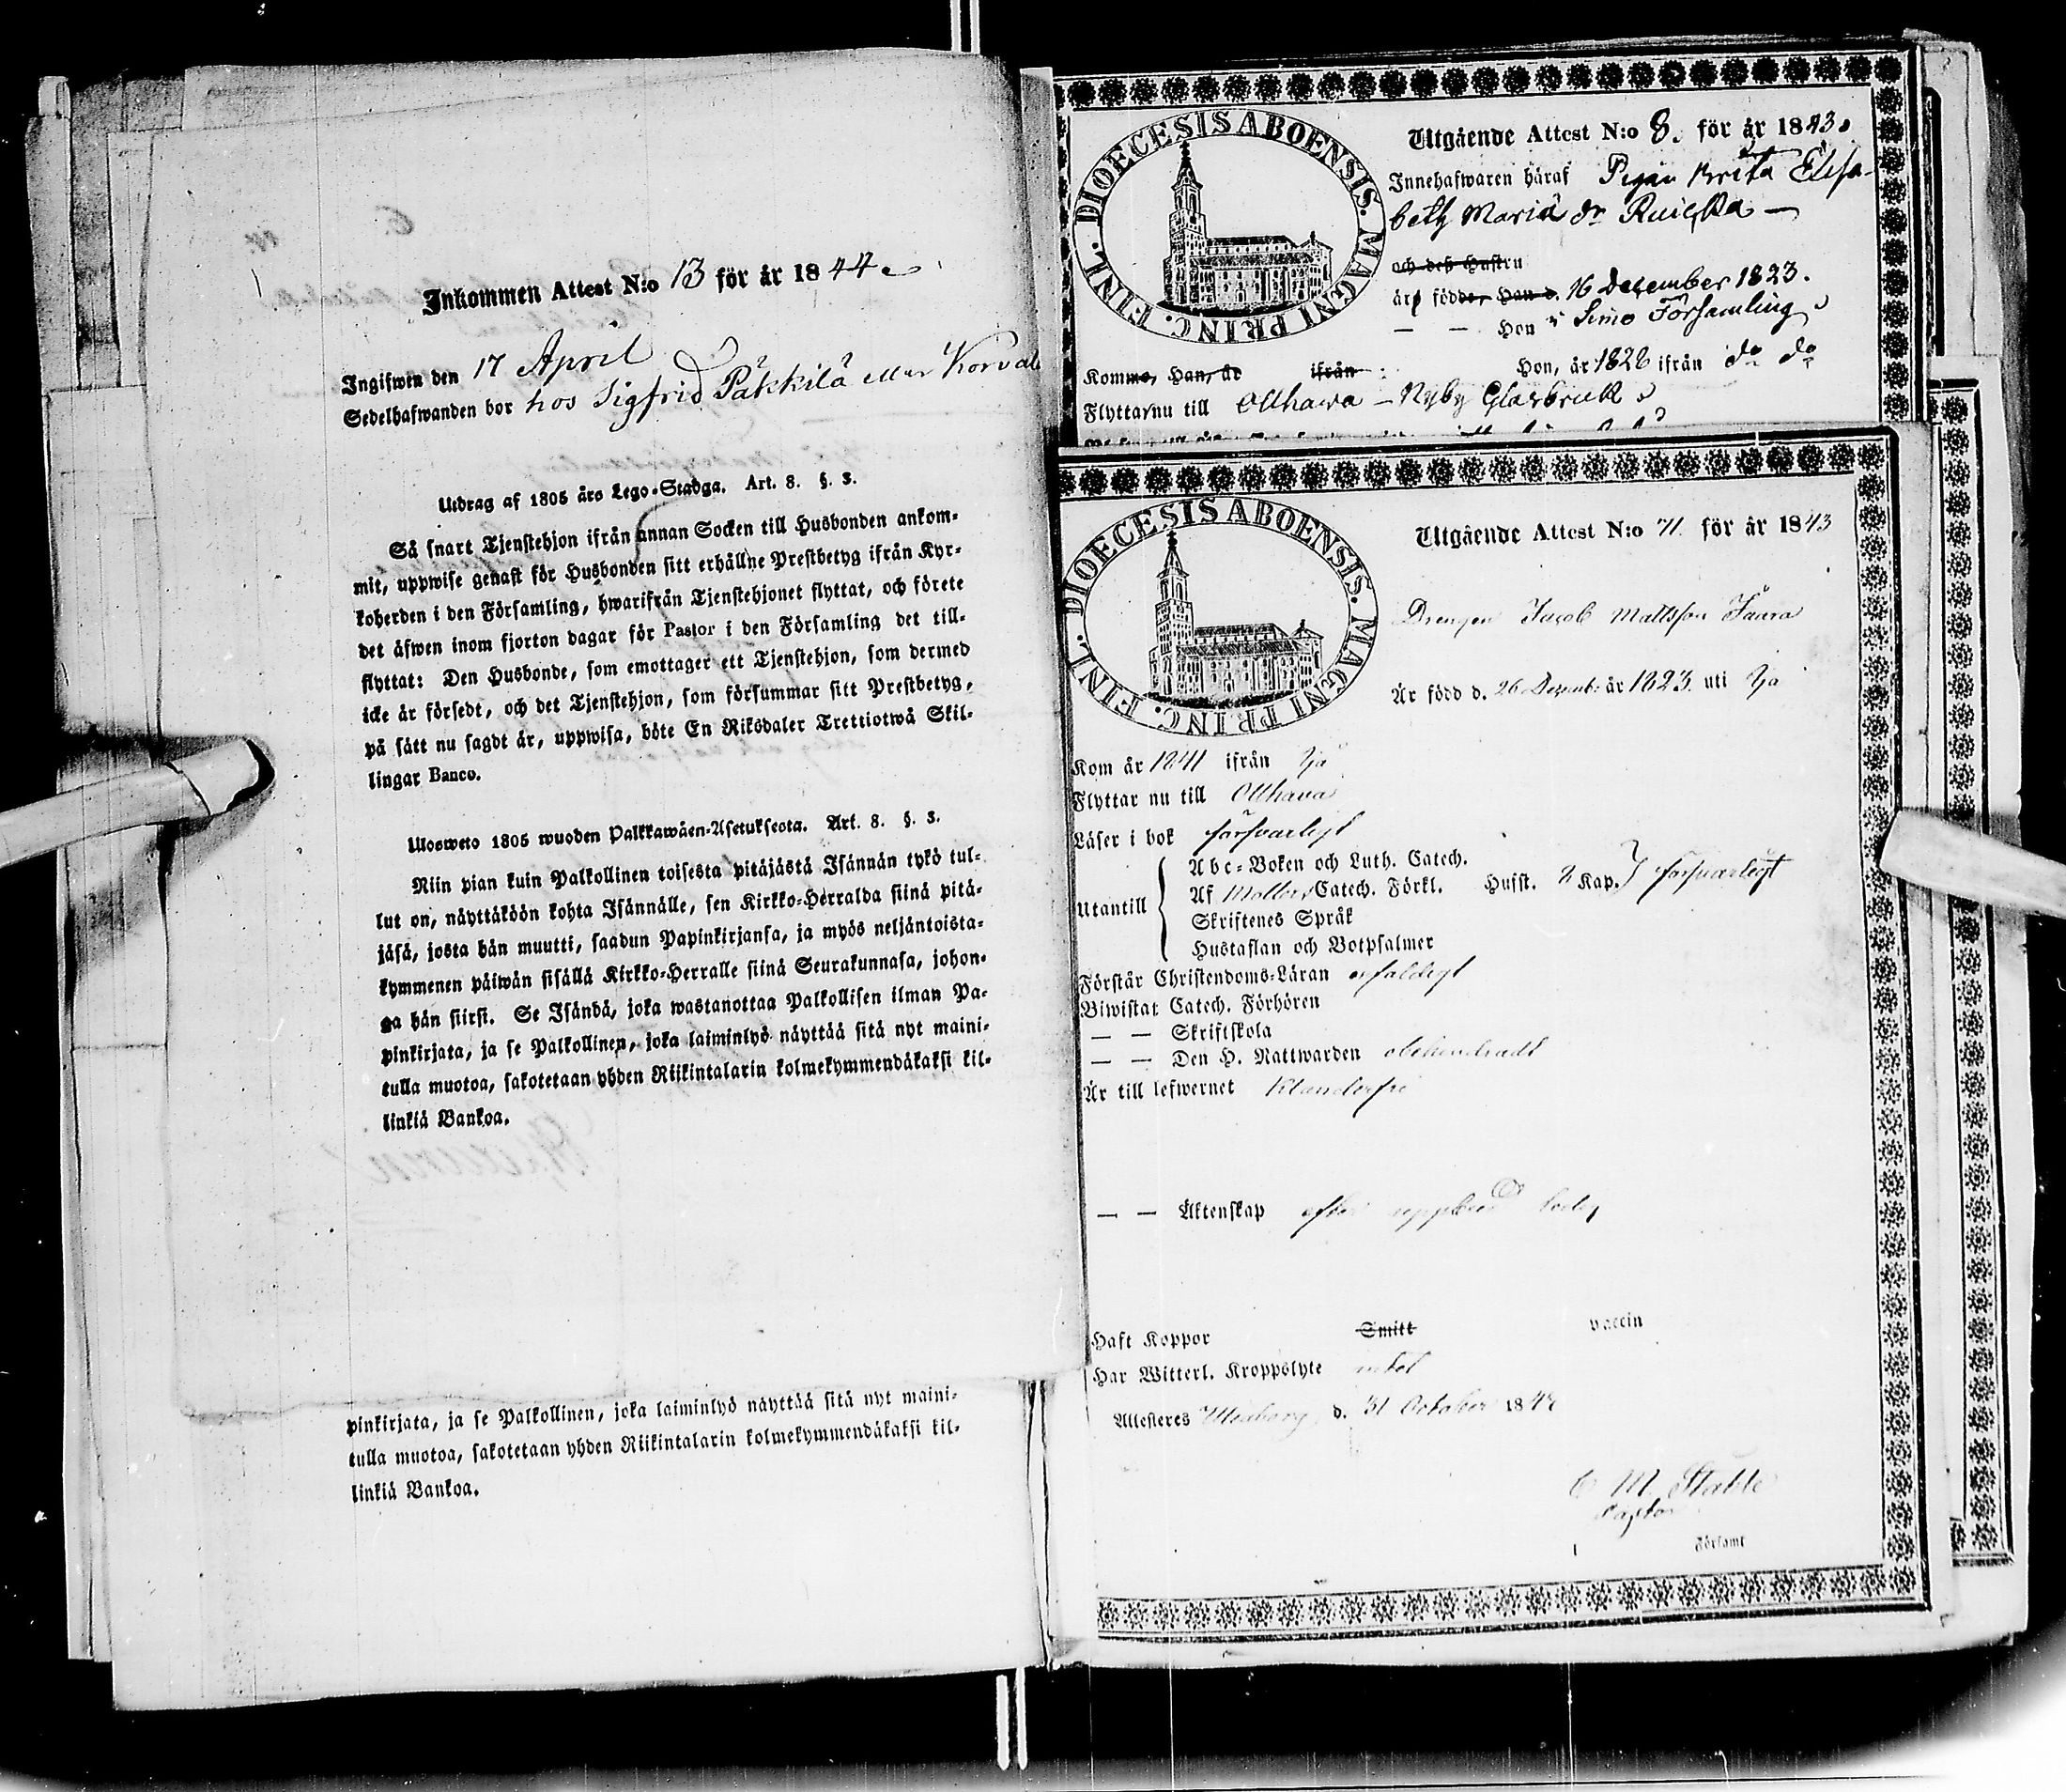 Inkommen Attest N:o 13 för år 1844
Ingifwen den 17 April
Sedelhafwanden bor hos Sigfrid Päkkilä eller Korvala
Utdrag af 1805 års Lego-Stadga. Art. 8. §. 3.
Så snart Tjenstehjon ifrån annan Socken till Husbonden ankom-
mit, uppwise genast för Husbonden sitt erhållne Prestbetyg ifrån Kyr-
koherden i den Församling, hwarifrån Tjenstehjonet flyttat, och förete
det äfwen inom fjorton dagar för Pastor i den Församling det till-
flyttat: Den Husbonde, som emottager ett Tjenstehjon, som dermed
icke är försedt, och det Tjenstehjon, som försummar sitt Prestbetyg,
på sätt nu sagdt är, uppwisa, böte En Riksdaler Trettiotwå Skil-
lingar Banco.
Ulosweto 1805 wuoden Palkkawäen-Asetuksesta. Art. 8. §. 3.
Niin pian kuin Palkollinen toisesta pitäjästä Isännän tykö tul-
lut on, näyttäköön kohta Isännälle, sen Kirkko-Herralda siinä pitä-
jäsä, josta hän muutti, saadun Papinkirjansa, ja myös neljäntoista-
kymmenen päiwän sisällä Kirkko-Herralle siinä Seurakunnasa, johon-
ga hän siirsi. Se Isändä, joka wastanottaa Palkollisen ilman Pa-
pinkirjata, ja se Palkollinen, joka laiminlyö näyttää sitä nyt maini-
tulla muotoa, sakotetaan yhden Riikintalarin kolmekymmendäkaksi kil-
linkiä Bankoa.
pinkirjata, ja se Palkollinen, joka laiminlyö näyttää sitä nyt maini-
tulla muotoa, sakotetaan yhden Riikintalarin kolmekymmendäkaksi kil-
linkiä Bankoa.
DIOECESIS ABOENSIS. MAGNI PRINC. FINL.
Utgående Attest N:o 8. för år 1843.
Innehafwaren häraf Pigan Brita Elisa-
beth Maria dr Ruiska —
och deß Hustru
äro födde, Han d. 16 december 1823.
— — Hon i Simo Församling
Komme, Han, år ifrån Hon, år 1828 ifrån do do
Flyttar nu till Olhawa – Nyby Glasbruk
DIOECESIS ABOENSIS. MAGNI PRINC. FINL.
Utgående Attest N:o 71. för år 1843
Drengen Jacob Mattsson Jaara
Är född d. 26 Decemb. år 1823. uti Ijo
Kom år 1841 ifrån Ijo
Flyttar nu till Olhava
Läser i bok försvarligt
Utantill
Abc-Boken och Luth. Catech.
Af Möllers Catech. Förkl. Hufst. 2 Kap. försvarligt
Skriftenes Språk
Hustaflan och Botpsalmer
Förstår Christendoms-Läran enfaldigt
Biwistat Catech. Förhören
— — Skriftskola
— — Den H. Nattwarden obehindradt
Är till lefwernet klanderfri
— — Äktenskap efter upplyst ledig
Haft Koppor Smitt vaccin
Har Witterl. Kroppslyte intet
Attesteras Uleåborg d. 31 October 184
C M Stable
Pastor
Församl